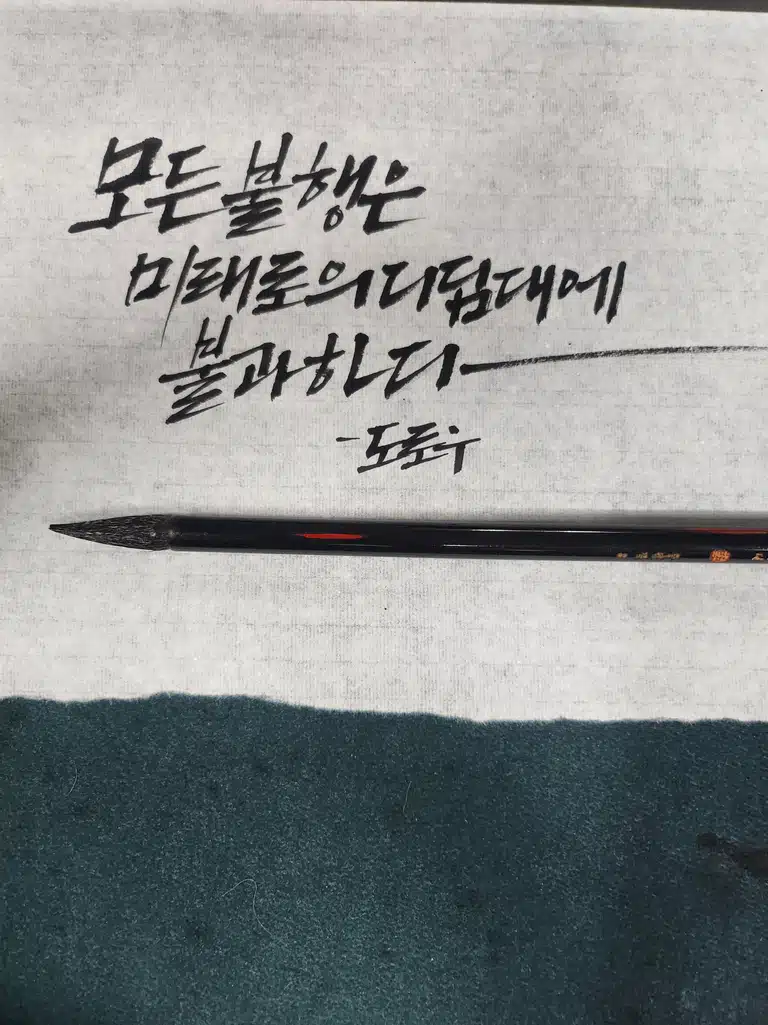 모든 불행은
미래로의 디딤대에
불과하다
- 도로우